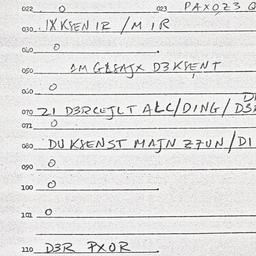 022 0 023 PAXOZ3 Q
030 IXKSENIR/MIR
040 0
050 D3KSENT
060 0
070 ZI D3RCEJLT ALC/DING/D3
071 0
080 DUKSENST MAJN ZZUN/DI
090 0
100 0
101 0
110 D3R PXOR